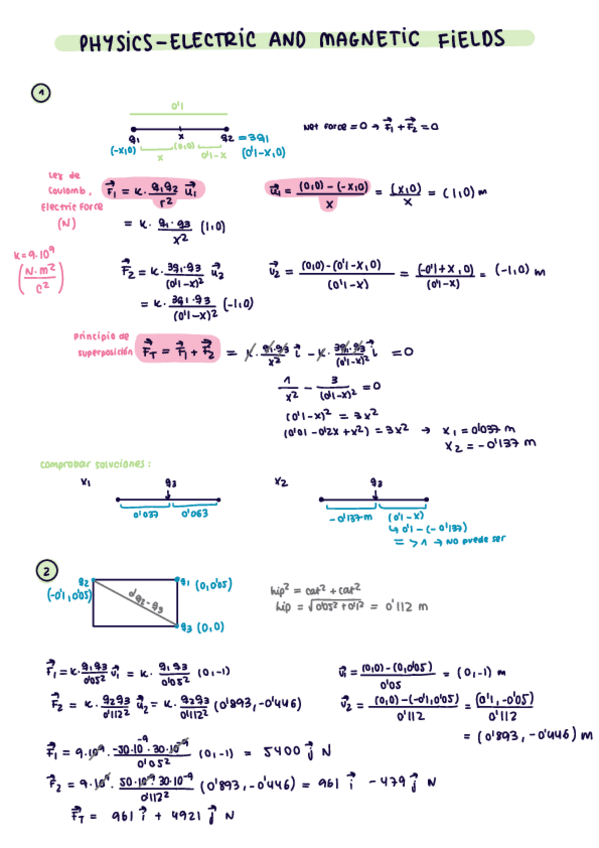 PHYSICS - ELECTRIC AND MAGNETIC FIELDS
1
0'1
q1 x q2 = 3q1
(-x,0) (0,0) (0'1-x,0)
x 0'1-x
Net force = 0 → F⃗1 + F⃗2 = 0
Ley de Coulomb.
Electric Force (N)
F⃗1 = K · q1q2/r² u⃗1
u⃗1 = (0,0) - (-x,0)/x = (x,0)/x = (1,0) m
= K · q1·q3/x² (1,0)
K = 9·10⁹ (N·m²/C²)
F⃗2 = K · 3q1·q3/(0'1-x)² u⃗2
u⃗2 = (0,0)-(0'1-x,0)/(0'1-x) = (-0'1+x,0)/(0'1-x) = (-1,0) m
= K · 3q1·q3/(0'1-x)² (-1,0)
Principio de superposición
F⃗T = F⃗1 + F⃗2 = K · q1·q3/x² i⃗ - K · 3q1·q3/(0'1-x)² i⃗ = 0
1/x² - 3/(0'1-x)² = 0
(0'1-x)² = 3x²
(0'01 - 0'2x + x²) = 3x² → x1 = 0'037 m
x2 = -0'137 m
comprobar soluciones:
x1 q3
0'037 0'063
x2 q3
-0'137 m (0'1-x)
↳ 0'1-(-0'137)
= > 1 → No puede ser
2
q2 (-0'1, 0'05)
q1 (0, 0'05)
d q2-q3
q3 (0,0)
hip² = cat² + cat²
hip = √0'05² + 0'1² = 0'112 m
F⃗1 = K · q1q3/0'05² u⃗1 = K · q1q3/0'05² (0,-1)
u⃗1 = (0,0)-(0,0'05)/0'05 = (0,-1) m
F⃗2 = K · q2q3/0'112² u⃗2 = K · q2q3/0'112² (0'893, -0'446)
u⃗2 = (0,0)-(-0'1, 0'05)/0'112 = (0'1, -0'05)/0'112
= (0'893, -0'446) m
F⃗1 = 9·10⁹ · -30·10⁻⁹ · 30·10⁻⁹/0'05² (0,-1) = 5400 j⃗ N
F⃗2 = 9·10⁹ · 50·10⁻⁹ 30·10⁻⁹/0'112² (0'893, -0'446) = 961 i⃗ - 479 j⃗ N
F⃗T = 961 i⃗ + 4921 j⃗ N